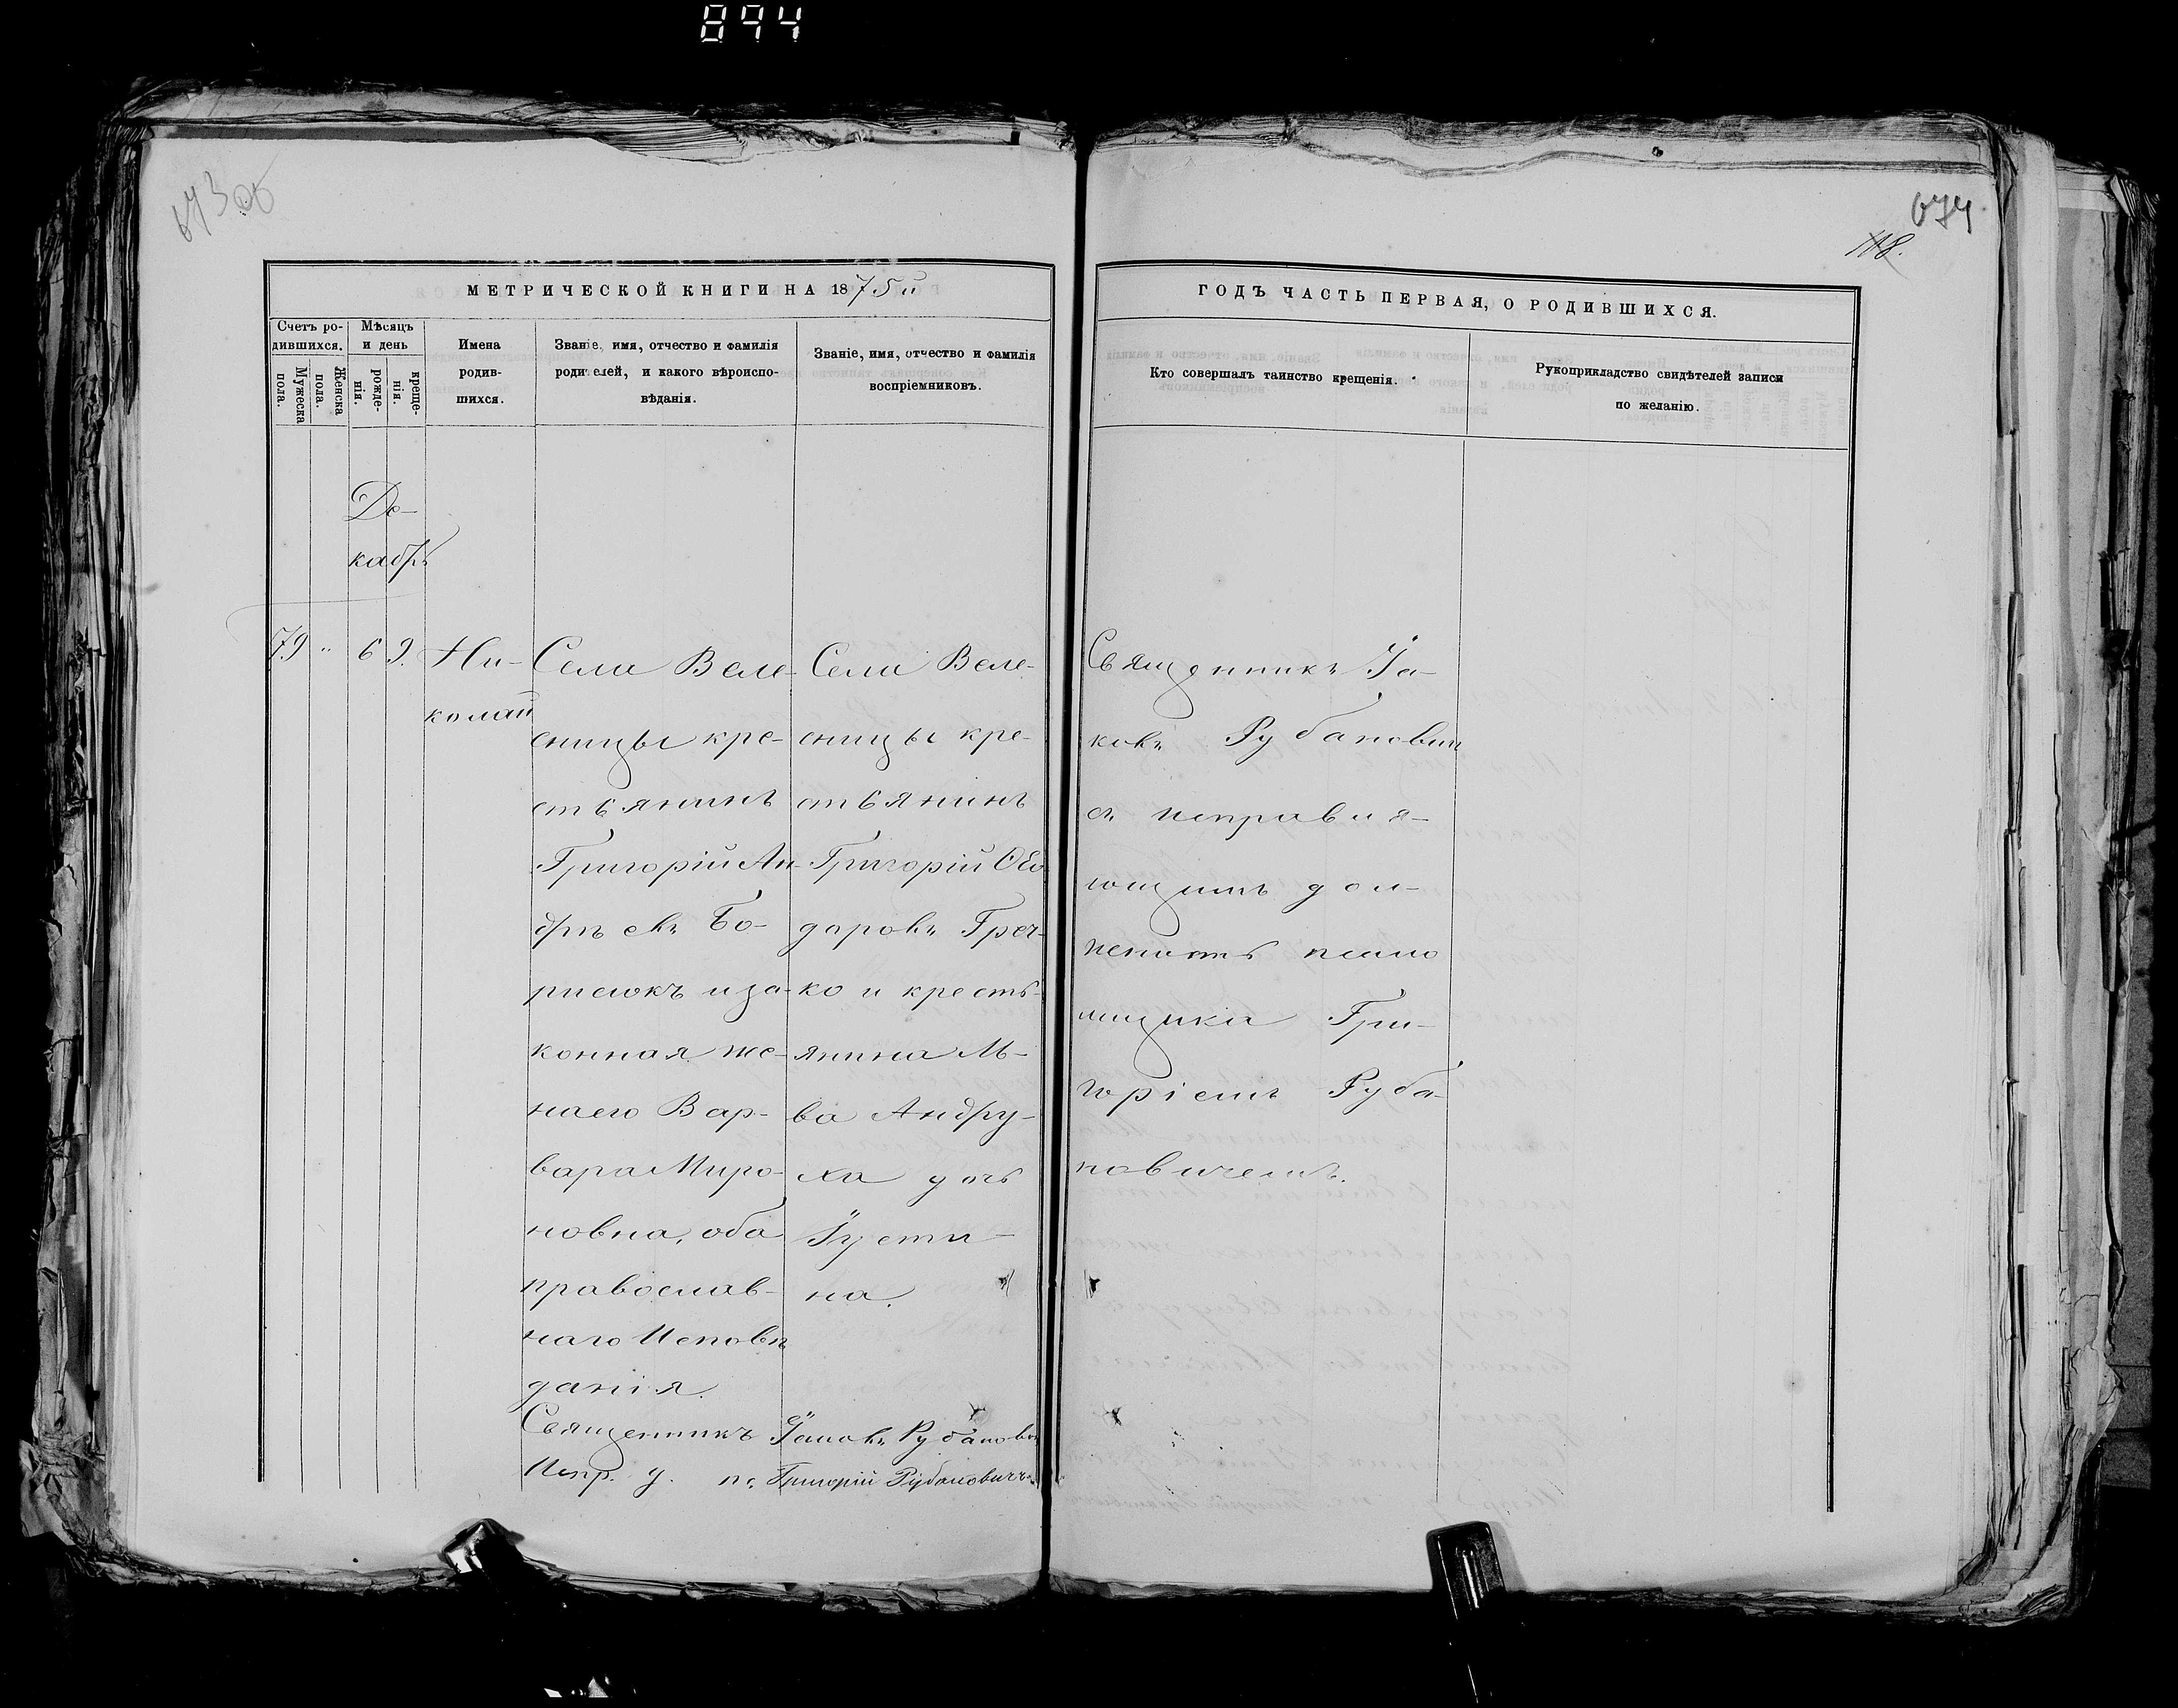 894
673 об
674
118.
МЕТРИЧЕСКОЙ КНИГИ НА 1875й
ГОДЪ ЧАСТЬ ПЕРВАЯ, О РОДИВШИХСЯ.
Счетъ ро-
дившихся.
Мужеска
пола.
Женска
пола.
Мѣсяцъ
и день
рожде-
нія.
креще-
нія.
Имена
родив-
шихся.
Званіе, имя, отчество и фамилія
родителей, и какого вѣроиспо-
вѣданія.
Званіе, имя, отчество и фамилія
воспріемниковъ.
Кто совершалъ таинство крещенія.
Рукоприкладство свидѣтелей записи
по желанію.
Де-
кабрь
79 " 6 9.
Ни-
колай
Села Веле-
еницы кре-
стьянинъ
Григорій Ан-
дрѣевъ Бо-
рисюкъ иза-
конная же-
наего Вар-
вара Миро-
новна, оба
православ-
наго Исповѣ
данія.
Села Веле-
еницы кре-
стьянинъ
Григорій Ѳео
доровъ Греч-
ко и кресть-
янина Ль-
ва Андру-
ха дочь
Іусти-
на.
Священникъ Іа-
ковъ Рубанович
съ исправля-
ющимъ дол-
жность псало
мщика Гри-
горіемъ Руба-
новичемъ.
Священникъ Іаковъ Рубанович
Испр. д. пс. Григорій Рубановичъ